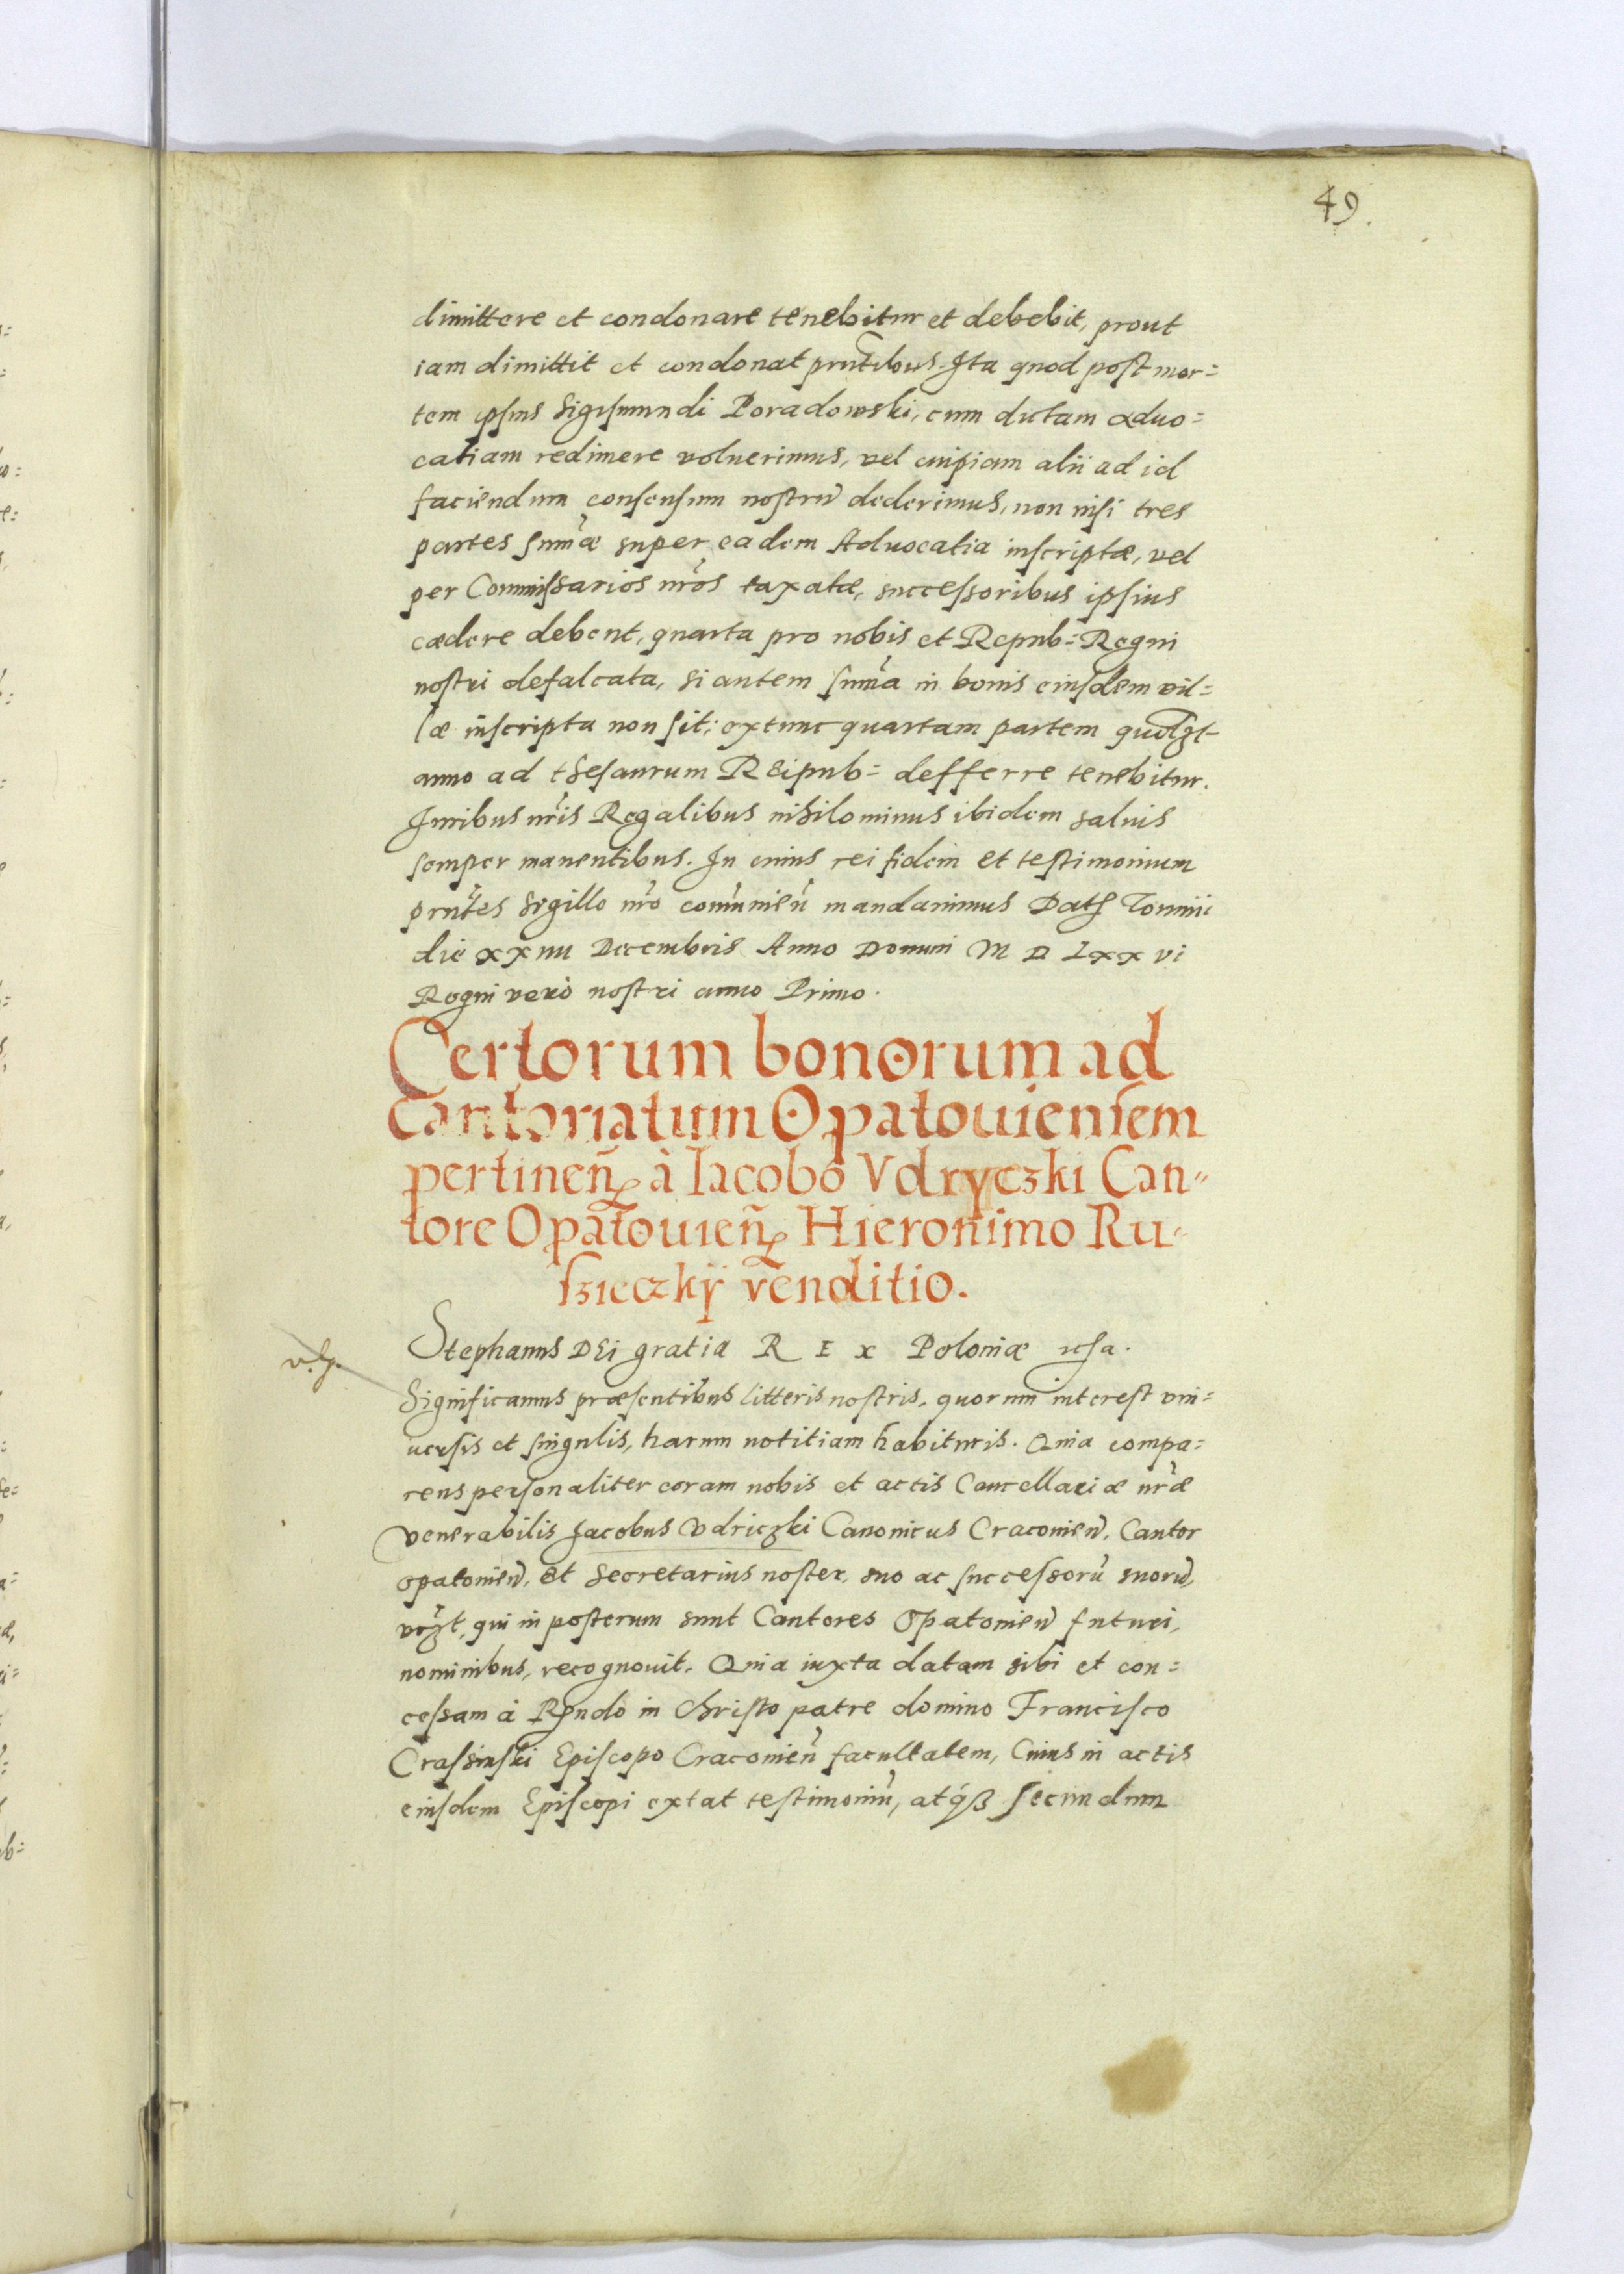 49.
dimittere et condonare tenebitur et debebit, prout
iam dimittit et condonat prñtibus. Ita quod post mor=
tem ipsius Sigismundi Poradowski, cum dictam aduo=
catiam redimere voluerimus, vel cuipiam alii ad id
faciendum consensum nostrũ dederimus, non nisi tres
partes sum̃æ super eadem Aduocatia inscriptæ, vel
per Commissarios nr̃os taxatæ, successoribus ipsius
cædere debent, quarta pro nobis et Repub= Regni
nostri defalcata, si autem sum̃a in bonis eiusdem vil=
læ inscripta non sit; extunc quartam partem
anno ad thesaurum Reipub= defferre tenebitur.
Iuribus nr̃is Regalibus nihilominus ibidem saluis
semper manentibus. In cuius rei fidem et testimonium
prñtes sigillo nr̃o com̃unieñ mandauimus Datʒ
die xxiiii Decembris Anno Domini M D Lxx vi
Regni verò nostri anno Primo.
Certorum bonorum ad
Cantoriatum Opatouiensem
pertineñ à Iacobo Vdryczki Can=
tore Opatouieñ Hieronimo Ru=
szieczkÿ venditio.
Stephanus DEi gratia REx Poloniæ
Significamus præsentibus litteris nostris, quorum interest vni=
uersis et singulis, harum notitiam habituris. Quia compa=
rens personaliter coram nobis et actis Cancellariæ nr̃æ
venerabilis Jacobus Vdriczki Canonicus Cracouieñ, Cantor
opatouieñ, et Secretarius noster, suo ac successorũ suorũ,
qui in posterum sunt Cantores Opatouieñ futuri,
nominibus, recognouit. Quia iuxta datam sibi et con=
cessam à Rñdo in Christo patre domino Francisco
Crassinski Episcopo Cracouieñ facultatem, Cuius in actis
eiusdem Episcopi extat testimoniũ, atqʒ secundum